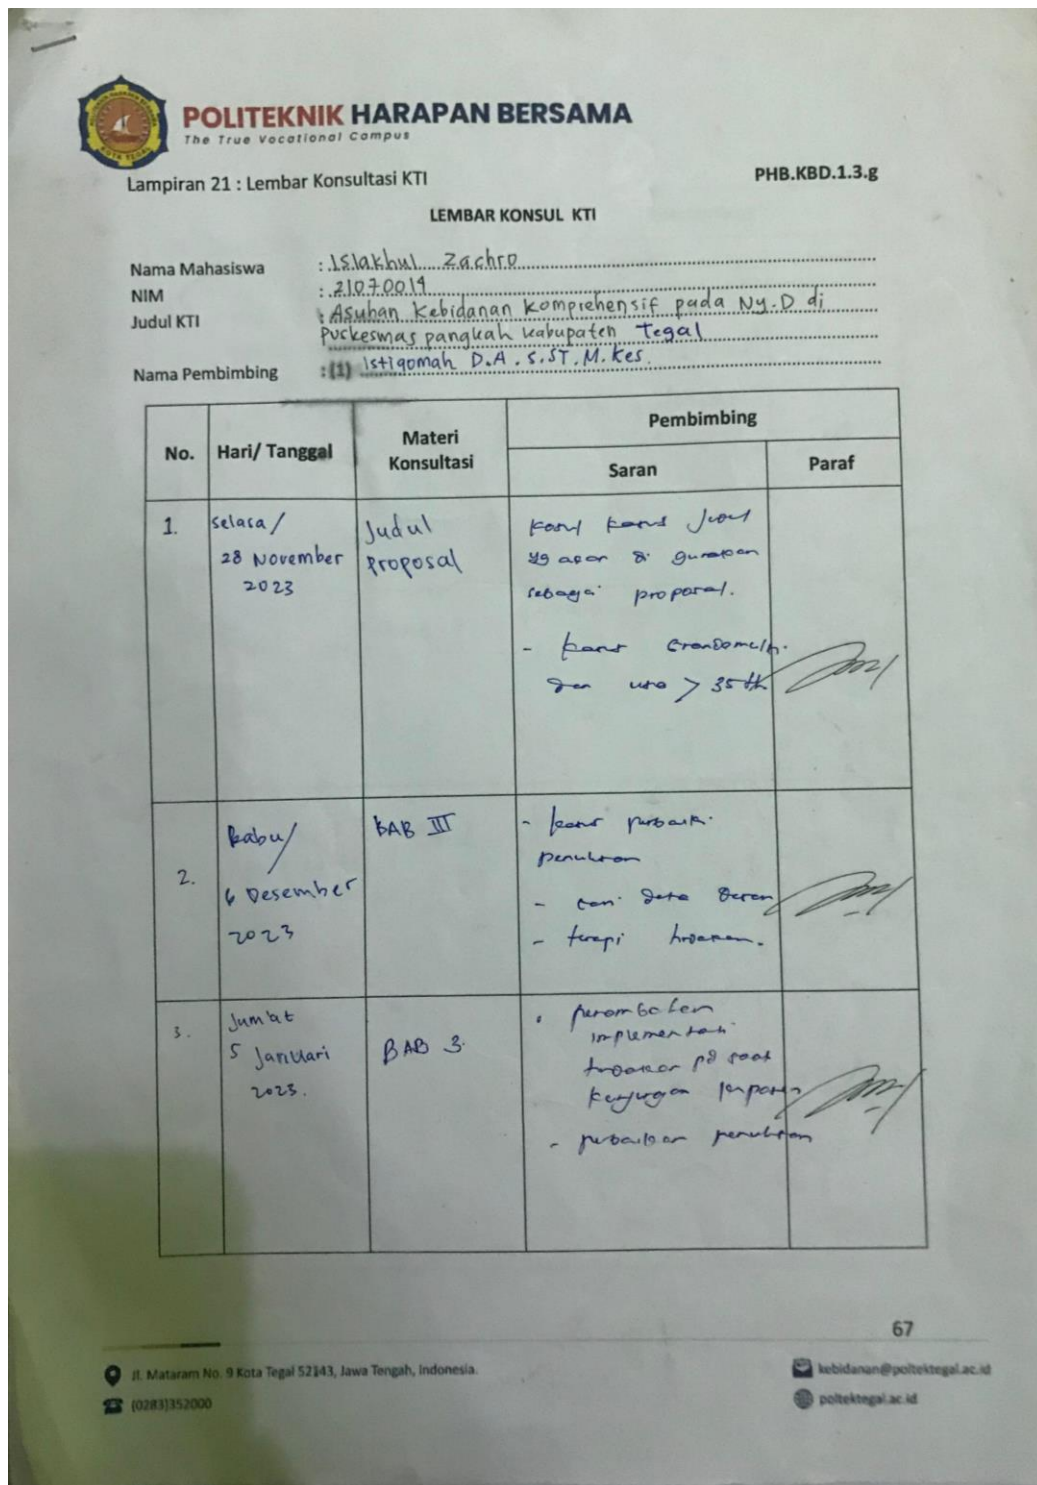 POLITEKNIK HARAPAN BERSAMA
The True Vocational Campus
Lampiran 21 : Lembar Konsultasi KTI
PHB.KBD.1.3.g
LEMBAR KONSUL KTI
Nama Mahasiswa : Islakhul Zachro
NIM : 21070019
Judul KTI : Asuhan Kebidanan Komprehensif pada Ny.D di
Puskesmas pangkah kabupaten Tegal
Nama Pembimbing : (1) Istiqomah D.A . S.ST. M. Kes.
No. Hari/ Tanggal Materi Konsultasi Pembimbing
Saran Paraf
1. Selasa/
28 November
2023
Judul
proposal
yg akan di gunakan
sebagai proposal.
-
dan usia > 35 th
2. Rabu/
6 Desember
2023
BAB III
-
penulisan
- cari data
- terapi
3. Jum'at
5 Januari
2023.
BAB 3.
implementasi
pd saat
- perbaikan penulisan
67
Jl. Mataram No. 9 Kota Tegal 52143, Jawa Tengah, Indonesia.
(0283)352000
kebidanan@poltektegal.ac.id
poltektegal.ac.id